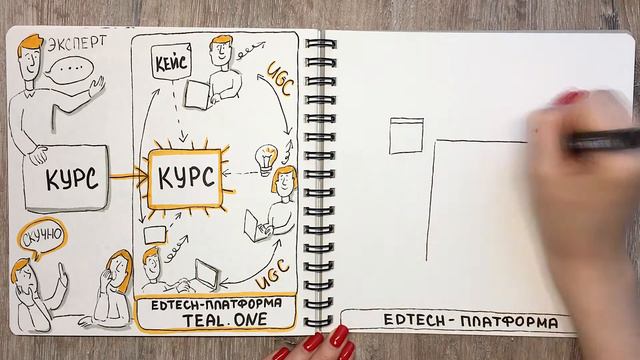 ЭКСПЕРТ
КУРС
СКУЧНО
КЕЙС
UGC
КУРС
UGC
EDTECH-ПЛАТФОРМА
TEAL.ONE
EDTECH-ПЛАТФОРМА